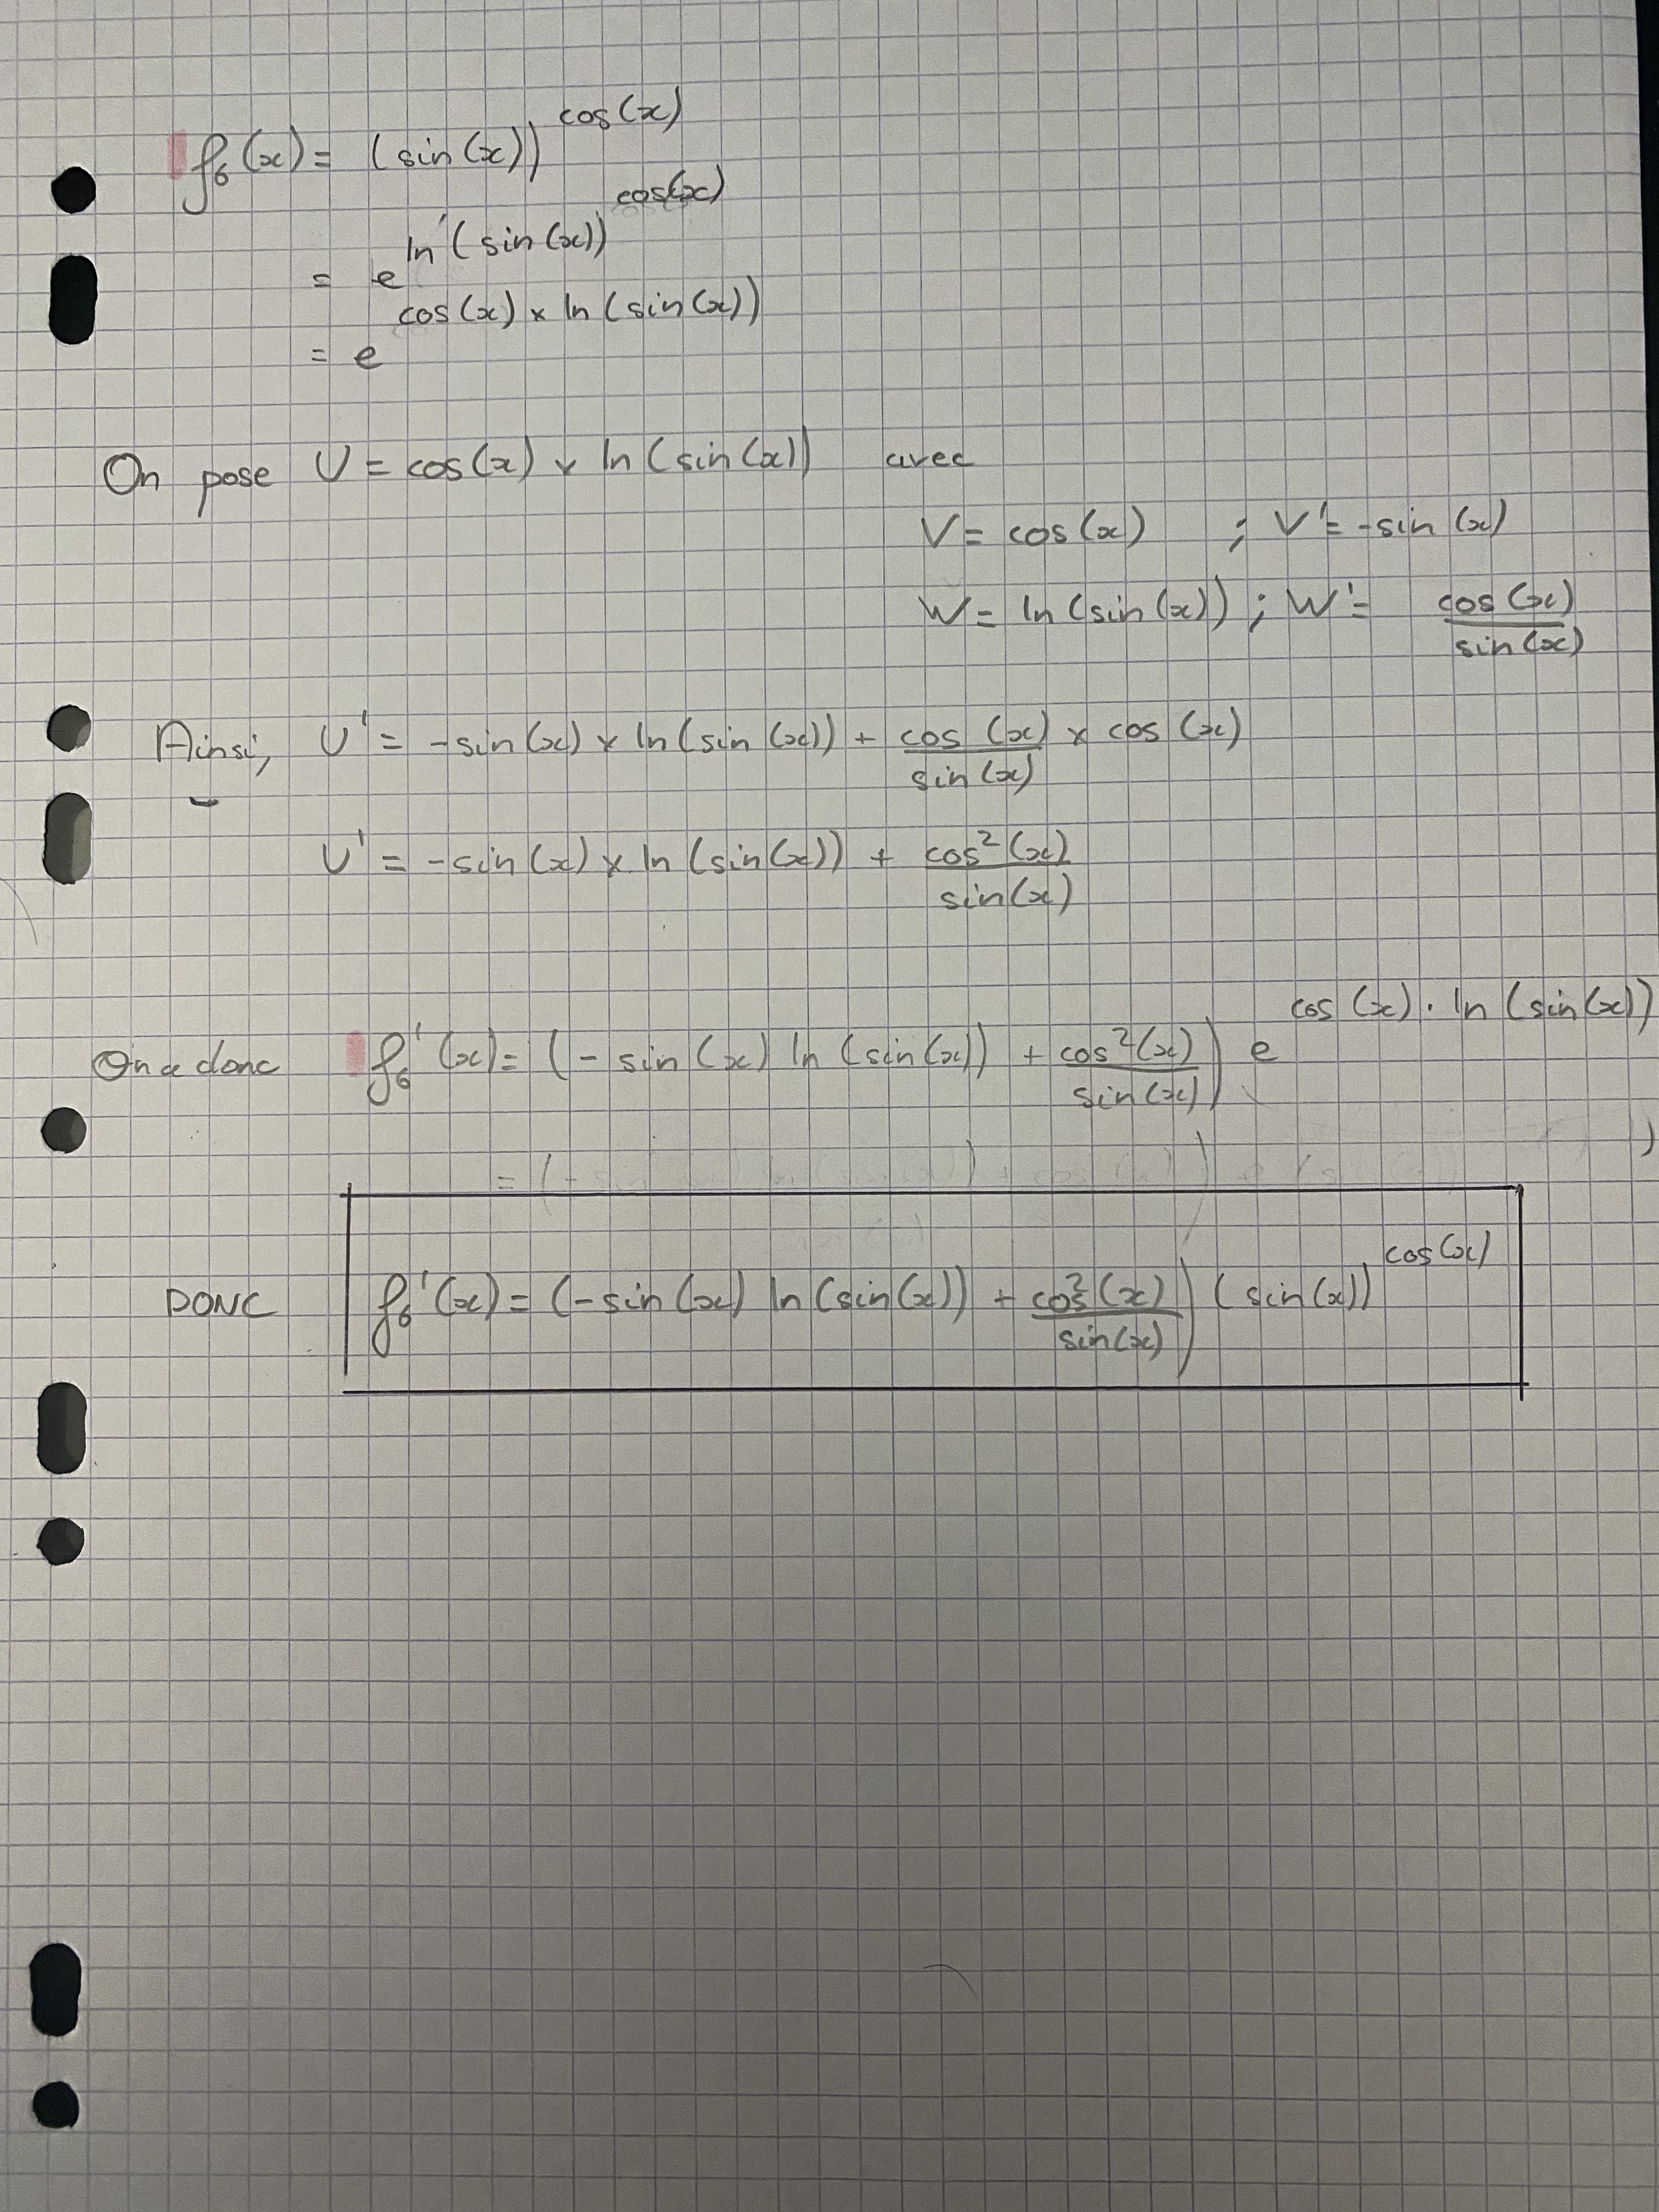 f₆(x) = (sin(x))^cos(x)
= e^ln(sin(x))^cos(x)
= e^cos(x) × ln(sin(x))
On pose U = cos(x) × ln(sin(x)) avec
V = cos(x) ; V' = -sin(x)
W = ln(sin(x)) ; W' = cos(x)/sin(x)
Ainsi, U' = -sin(x) × ln(sin(x)) + cos(x)/sin(x) × cos(x)
U' = -sin(x) × ln(sin(x)) + cos²(x)/sin(x)
On a donc f₆'(x) = (-sin(x) ln(sin(x)) + cos²(x)/sin(x)) e^cos(x) · ln(sin(x))
DONC f₆'(x) = (-sin(x) ln(sin(x)) + cos²(x)/sin(x)) (sin(x))^cos(x)